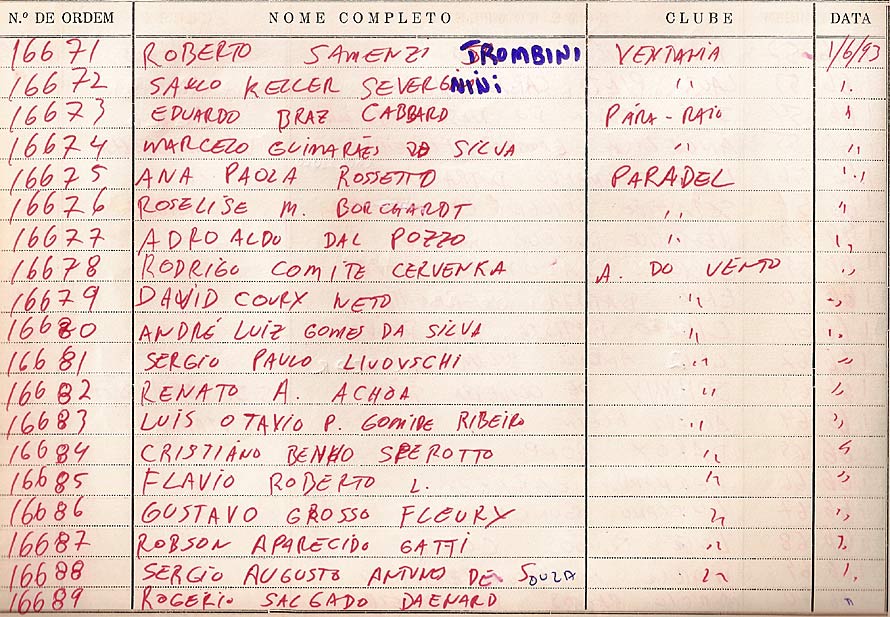 N.º DE ORDEM NOME COMPLETO CLUBE DATA
16671 ROBERTO SAMENZI TROMBINI VENTANIA 1/6/93
16672 KELLER SEVERGNINI " "
16673 EDUARDO BRAZ CABBARD PÁRA-RAIO "
16674 MARCELO GUIMARÃES DA SILVA " "
16675 ANA PAOLA ROSSETTO PARADEL "
16676 ROSELISE M. BORCHARDT " "
16677 ADROALDO DAL POZZO " "
16678 RODRIGO COMITE CERVENKA A. DO VENTO "
16679 DAVID COURY NETO " "
16680 ANDRÉ LUIZ GOMES DA SILVA " "
16681 SERGIO PAULO LIVOVSCHI " "
16682 RENATO A. ACHOA " "
16683 LUIS OTAVIO P. GOMIDE RIBEIRO " "
16684 CRISTIANO BENHO SPEROTTO " "
16685 FLAVIO ROBERTO L. " "
16686 GUSTAVO GROSSO FLEURY " "
16687 ROBSON APARECIDO GATTI " "
16688 SERGIO AUGUSTO ANTUNO DE SOUZA " "
16689 ROGERIO SALGADO DAENARD "